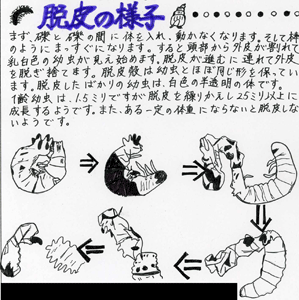 脱皮の様子
まず、礫と礫の間に体を入れ、動かなくなります。そして棒
のようにまっすぐになります。すると頭部から外皮が割れて
乳白色の幼虫が見え始めます。脱皮が進むに連れて外皮
を脱ぎ捨てます。脱皮殻は幼虫とほぼ同じ形を保ってい
ます。脱皮したばかりの幼虫は、白色の半透明の体です。
1齢幼虫は、1.5ミリですが脱皮を繰りかえし25ミリ以上に
成長するようです。また、ある一定の体重にならないと脱皮しな
いようです。